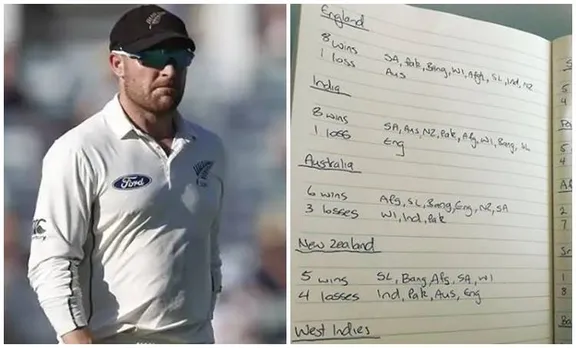 Ford
England
8 wins SA, Pak, Bang, WI, Afg, SL, Ind, NZ
1 loss Aus
India
8 wins SA, Aus, NZ, Pak, Afg, WI, Bang, SL
1 loss Eng
Australia
6 wins Afg, SL, Bang, Eng, NZ, SA
3 losses WI, Ind, Pak
New Zealand
5 wins SL, Bang, Afg, SA, WI
4 losses Ind, Pak, Aus, Eng
West Indies
S
5
4
5
4
Af
2
7
1
8
Ba